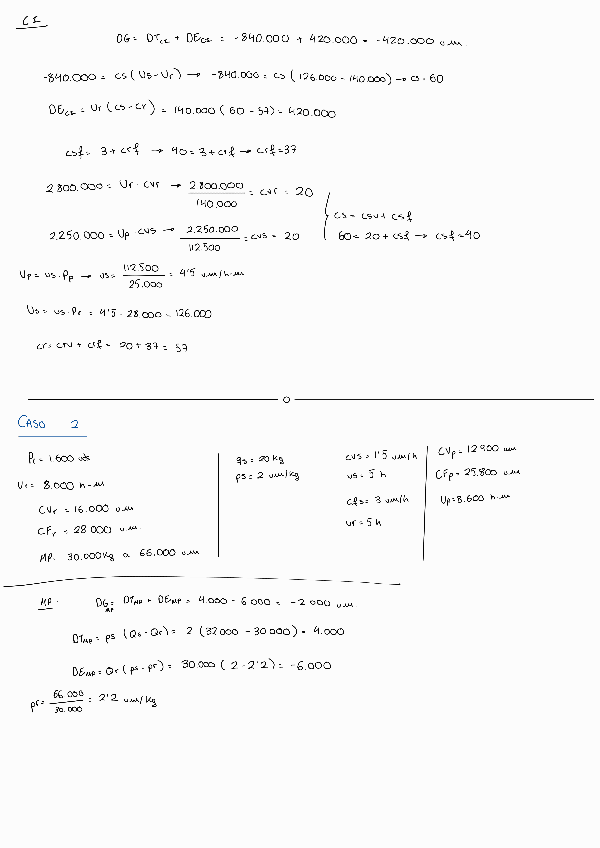 CI
DG = DTCI + DECI = -840.000 + 420.000 = -420.000 u.m.
-840.000 = cs (Us - Ur) → -840.000 = cs (126.000 - 140.000) → cs = 60
DECI = Ur (cs - cr) = 140.000 (60 - 57) = 420.000
csf = 3 + crf → 40 = 3 + crf → crf = 37
2.800.000 = Ur · cvr → 2.800.000 / 140.000 = cvr = 20
cs = csv + csf
2.250.000 = Up · cvs → 2.250.000 / 112.500 = cvs = 20
60 = 20 + csf → csf = 40
Up = us · Pp → us = 112.500 / 25.000 = 4'5 u.m/h-m
Us = us · Pr = 4'5 · 28.000 = 126.000
cr = crv + crf = 20 + 37 = 57
CASO 2
Pr = 1.600 uds
Ur = 8.000 h-m
CVr = 16.000 u.m
CFr = 28.000 u.m.
MP. 30.000 Kg a 66.000 u.m
qs = 20 Kg
ps = 2 u.m/Kg
cvs = 1'5 u.m/h
us = 5 h
cfs = 3 u.m/h
ur = 5 h
CVp = 12.900 u.m
CFp = 25.800 u.m
Up = 8.600 h.m
MP.
DG MP = DTMP + DEMP = 4.000 - 6.000 = -2.000 u.m.
DTMP = ps (Qs - Qr) = 2 (32000 - 30000) = 4.000
DEMP = Qr (ps - pr) = 30.000 (2 - 2'2) = -6.000
pr = 66.000 / 30.000 = 2'2 u.m/Kg